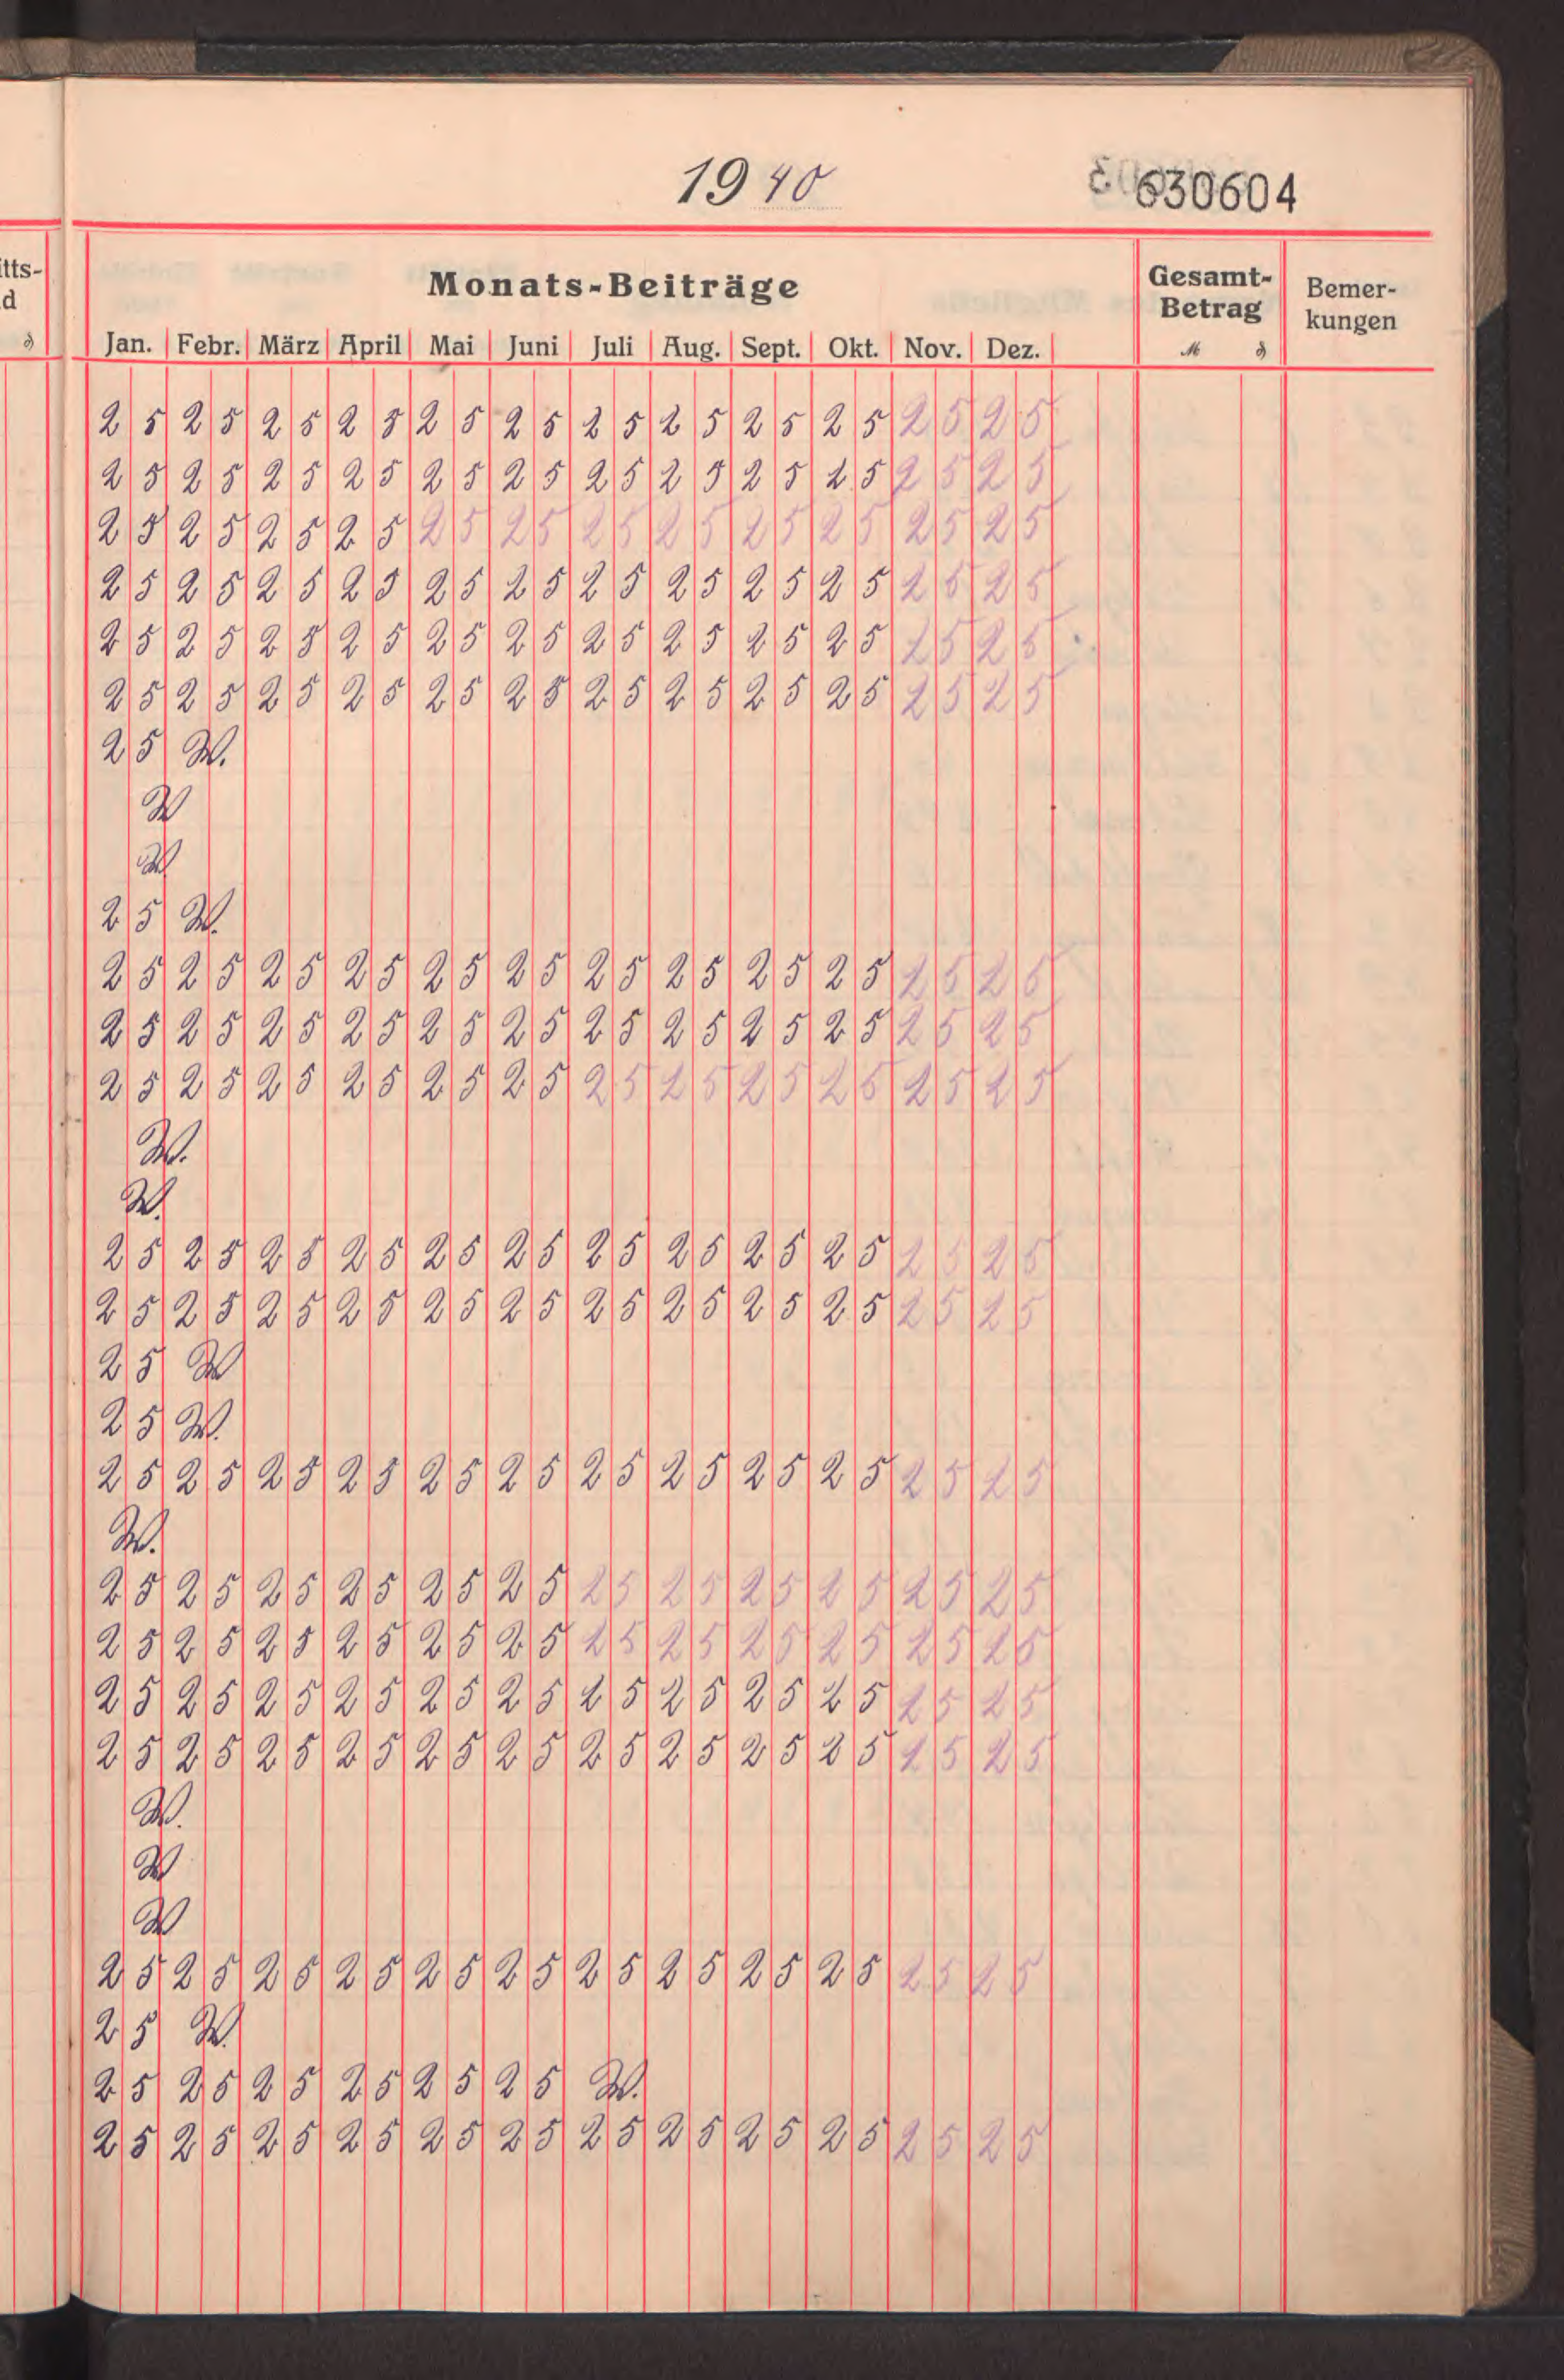 1940
630604
itts-
d
Monats-Beiträge
Gesamt-
Betrag
Bemer-
kungen
Jan. Febr. März April Mai Juni Juli Aug. Sept. Okt. Nov. Dez. ℳ ₰
25 25 25 25 25 25 25 25 25 25 25 25
25 25 25 25 25 25 25 25 25 25 25 25
25 25 25 25 25 25 25 25 25 25 25 25
25 25 25 25 25 25 25 25 25 25 25 25
25 25 25 25 25 25 25 25 25 25 25 25
25 25 25 25 25 25 25 25 25 25 25 25
25 W.
W
W
25 W.
25 25 25 25 25 25 25 25 25 25 25 25
25 25 25 25 25 25 25 25 25 25 25 25
25 25 25 25 25 25 25 25 25 25 25 25
W.
W.
25 25 25 25 25 25 25 25 25 25 25 25
25 25 25 25 25 25 25 25 25 25 25 25
25 W
25 W.
25 25 25 25 25 25 25 25 25 25 25 25
W.
25 25 25 25 25 25 25 25 25 25 25 25
25 25 25 25 25 25 25 25 25 25 25 25
25 25 25 25 25 25 25 25 25 25 25 25
25 25 25 25 25 25 25 25 25 25 25 25
W.
W
W
25 25 25 25 25 25 25 25 25 25 25 25
25 W.
25 25 25 25 25 25 W.
25 25 25 25 25 25 25 25 25 25 25 25